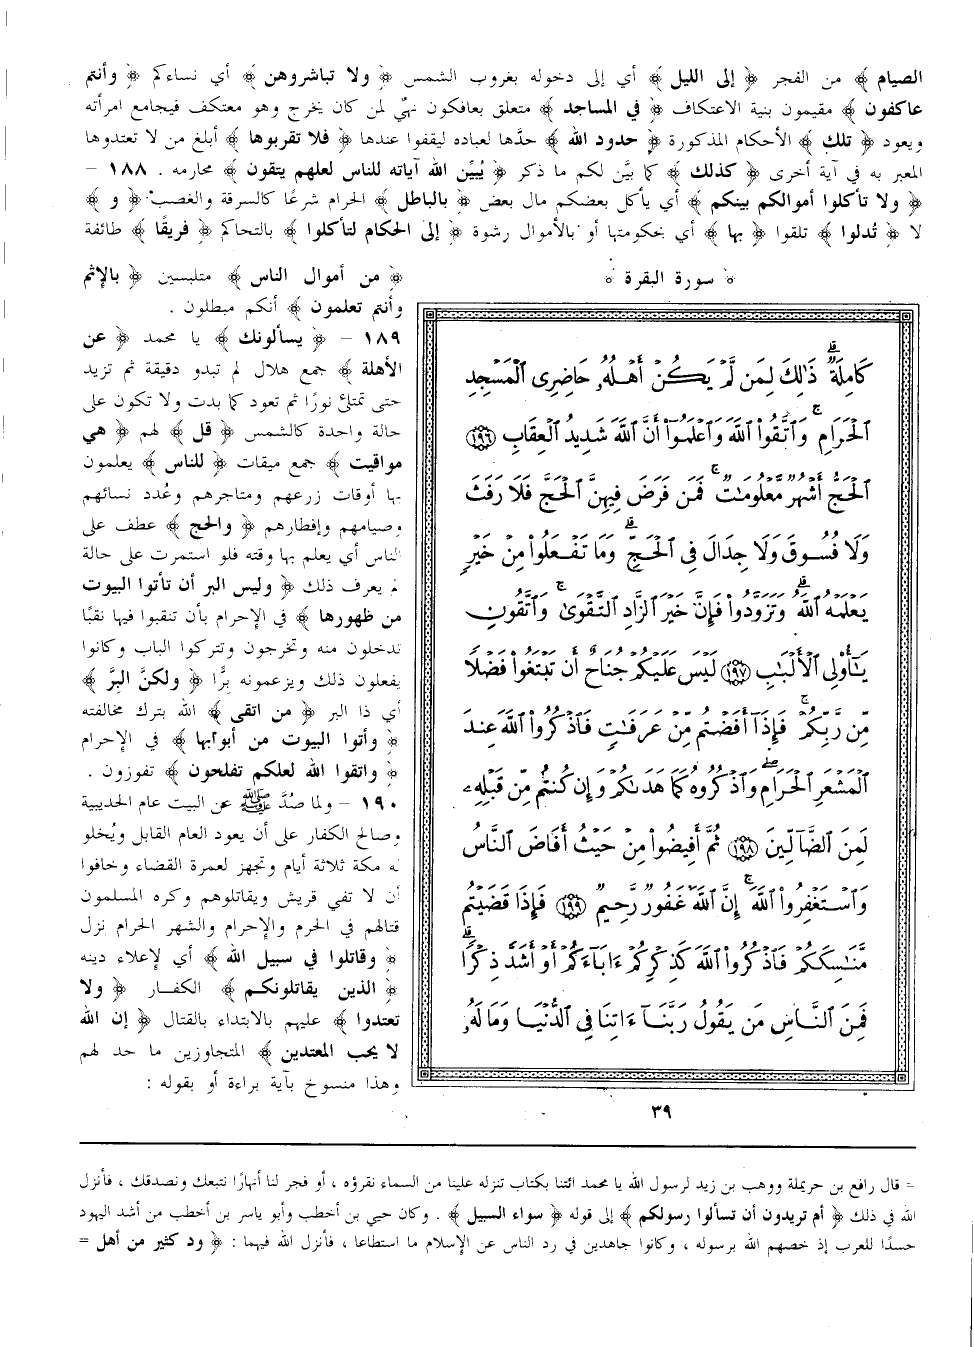 الصيام ﴾ من الفجر ﴿ إلى الليل ﴾ أي إلى دخوله بغروب الشمس ﴿ ولا تباشروهن ﴾ أي نساءكم ﴿ وأنتم
عاكفون ﴾ مقيمون بنية الاعتكاف ﴿ في المساجد ﴾ متعلق بعاكفون نهيٌ لمن كان يخرج وهو معتكف فيجامع امرأته
ويعود ﴿ تلك ﴾ الأحكام المذكورة ﴿ حدود الله ﴾ حدَّها لعباده ليقفوا عندها ﴿ فلا تقربوها ﴾ أبلغ من لا تعتدوها
المعبر به في آية أخرى ﴿ كذلك ﴾ كما بيَّن لكم ما ذكر ﴿ يُبيِّن الله آياته للناس لعلهم يتقون ﴾ محارمه . ١٨٨ –
﴿ ولا تأكلوا أموالكم بينكم ﴾ أي يأكل بعضكم مال بعض ﴿ بالباطل ﴾ الحرام شرعًا كالسرقة والغصب ﴿ و ﴾
لا ﴿ تُدلوا ﴾ تلقوا ﴿ بها ﴾ أي بحكومتها أو بالأموال رشوة ﴿ إلى الحكام لتأكلوا ﴾ بالتحاكم ﴿ فريقًا ﴾ طائفة
﴿ من أموال الناس ﴾ متلبسين ﴿ بالإثم
وأنتم تعلمون ﴾ أنكم مبطلون .
١٨٩ – ﴿ يسألونك ﴾ يا محمد ﴿ عن
الأهلة ﴾ جمع هلال لم تبدو دقيقة ثم تزيد
حتى تمتلئ نورًا ثم تعود كما بدت ولا تكون على
حالة واحدة كالشمس ﴿ قل ﴾ لهم ﴿ هي
مواقيت ﴾ جمع ميقات ﴿ للناس ﴾ يعلمون
بها أوقات زرعهم ومتاجرهم وعُدد نسائهم
وصيامهم وإفطارهم ﴿ والحج ﴾ عطف على
الناس أي يعلم بها وقته فلو استمرت على حالة
لم يعرف ذلك ﴿ وليس البر أن تأتوا البيوت
من ظهورها ﴾ في الإحرام بأن تنقبوا فيها نقبًا
تدخلون منه وتخرجون وتتركوا الباب وكانوا
يفعلون ذلك ويزعمونه برًّا ﴿ ولكنَّ البرَّ ﴾
أي ذا البر ﴿ من اتقى ﴾ الله بترك مخالفته
﴿ وأتوا البيوت من أبوابها ﴾ في الإحرام
﴿ واتقوا الله لعلكم تفلحون ﴾ تفوزون .
١٩٠ – ولما صُدَّ ﷺ عن البيت عام الحديبية
وصالح الكفار على أن يعود العام القابل ويُخلو
له مكة ثلاثة أيام وتجهز لعمرة القضاء وخافوا
أن لا تفي قريش ويقاتلوهم وكره المسلمون
قتالهم في الحرم والإحرام والشهر الحرام نزل
﴿ وقاتلوا في سبيل الله ﴾ أي لإعلاء دينه
﴿ الذين يقاتلونكم ﴾ الكفار ﴿ ولا
تعتدوا ﴾ عليهم بالابتداء بالقتال ﴿ إن الله
لا يحب المعتدين ﴾ المتجاوزين ما حد لهم
وهذا منسوخ بآية براءة أو بقوله :
﴿ سورة البقرة ﴾
كَامِلَةٌ ۗ ذَٰلِكَ لِمَن لَّمْ يَكُنْ أَهْلُهُۥ حَاضِرِى ٱلْمَسْجِدِ
ٱلْحَرَامِ ۚ وَٱتَّقُوا۟ ٱللَّهَ وَٱعْلَمُوٓا۟ أَنَّ ٱللَّهَ شَدِيدُ ٱلْعِقَابِ ١٩٦
ٱلْحَجُّ أَشْهُرٌ مَّعْلُومَٰتٌ ۚ فَمَن فَرَضَ فِيهِنَّ ٱلْحَجَّ فَلَا رَفَثَ
وَلَا فُسُوقَ وَلَا جِدَالَ فِى ٱلْحَجِّ ۗ وَمَا تَفْعَلُوا۟ مِنْ خَيْرٍ
يَعْلَمْهُ ٱللَّهُ ۗ وَتَزَوَّدُوا۟ فَإِنَّ خَيْرَ ٱلزَّادِ ٱلتَّقْوَىٰ ۚ وَٱتَّقُونِ
يَٰٓأُو۟لِى ٱلْأَلْبَٰبِ ١٩٧ لَيْسَ عَلَيْكُمْ جُنَاحٌ أَن تَبْتَغُوا۟ فَضْلًا
مِّن رَّبِّكُمْ ۚ فَإِذَآ أَفَضْتُم مِّنْ عَرَفَٰتٍ فَٱذْكُرُوا۟ ٱللَّهَ عِندَ
ٱلْمَشْعَرِ ٱلْحَرَامِ ۖ وَٱذْكُرُوهُ كَمَا هَدَىٰكُمْ وَإِن كُنتُم مِّن قَبْلِهِۦ
لَمِنَ ٱلضَّآلِّينَ ١٩٨ ثُمَّ أَفِيضُوا۟ مِنْ حَيْثُ أَفَاضَ ٱلنَّاسُ
وَٱسْتَغْفِرُوا۟ ٱللَّهَ ۚ إِنَّ ٱللَّهَ غَفُورٌ رَّحِيمٌ ١٩٩ فَإِذَا قَضَيْتُم
مَّنَٰسِكَكُمْ فَٱذْكُرُوا۟ ٱللَّهَ كَذِكْرِكُمْ ءَابَآءَكُمْ أَوْ أَشَدَّ ذِكْرًا ۗ
فَمِنَ ٱلنَّاسِ مَن يَقُولُ رَبَّنَآ ءَاتِنَا فِى ٱلدُّنْيَا وَمَا لَهُۥ
٣٩
= قال رافع بن حريملة ووهب بن زيد لرسول الله يا محمد ائتنا بكتاب تنزله علينا من السماء نقرؤه ، أو فجر لنا أنهارًا نتبعك ونصدقك ، فأنزل
الله في ذلك ﴿ أم تريدون أن تسألوا رسولكم ﴾ إلى قوله ﴿ سواء السبيل ﴾ . وكان حيي بن أخطب وأبو ياسر بن أخطب من أشد اليهود
حسدًا للعرب إذ خصهم الله برسوله ، وكانوا جاهدين في رد الناس عن الإسلام ما استطاعا ، فأنزل الله فيهما : ﴿ ود كثير من أهل =